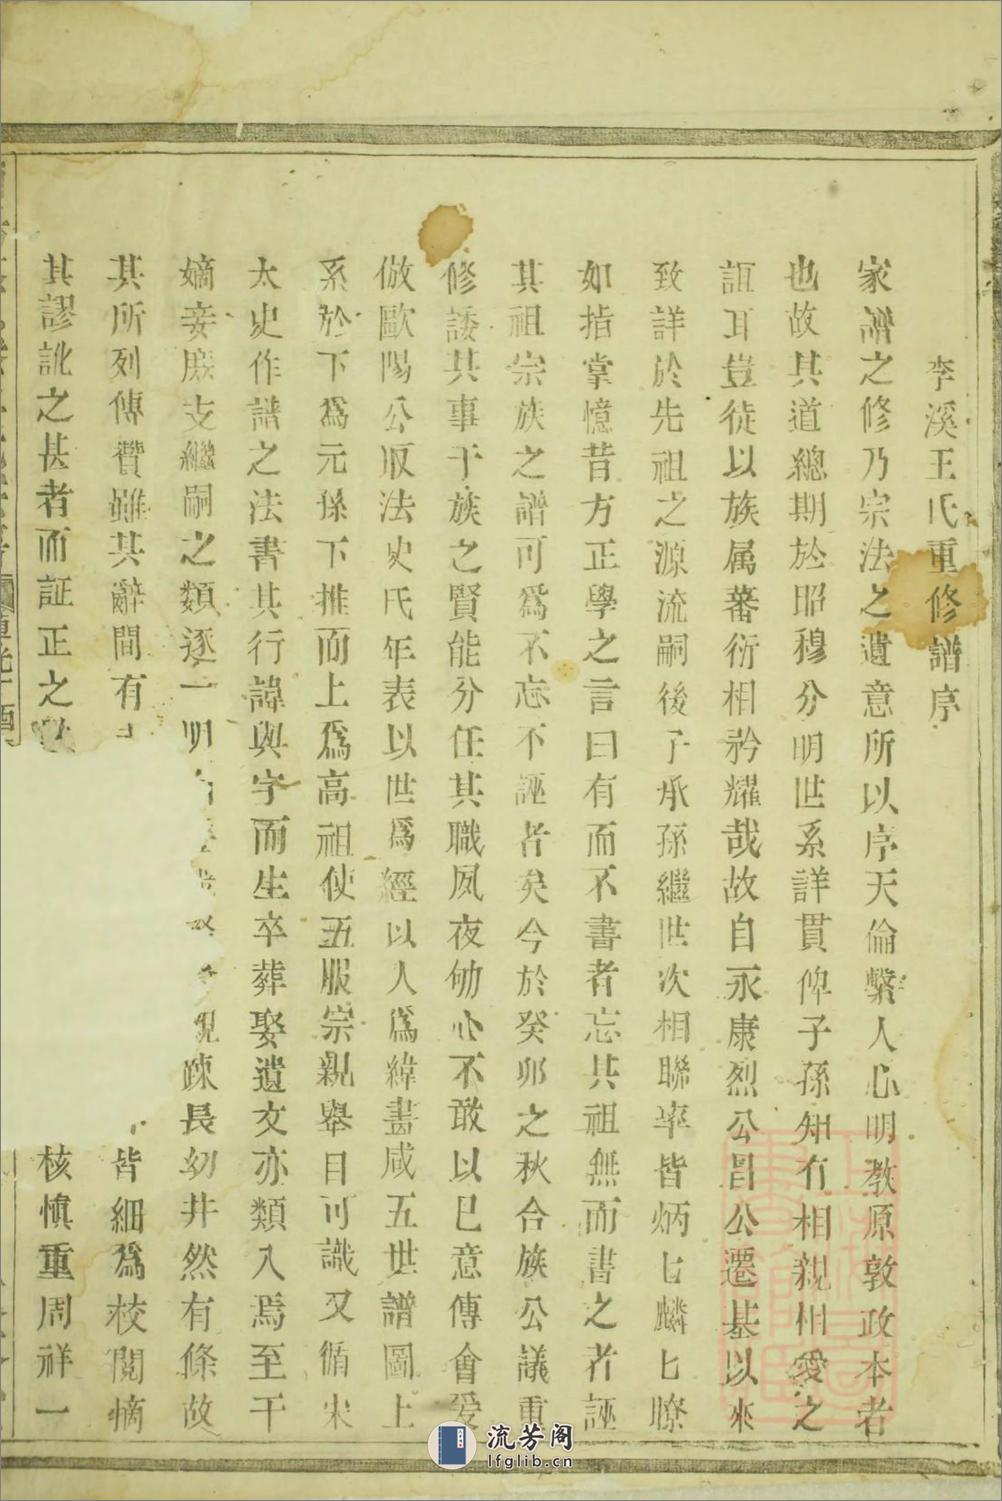 李溪王氏重修譜序
家譜之修乃宗法之遺意所以序天倫繫人心明教原敦政本者
也故其道總期於昭穆分明世系詳貫俾子孫知有相親相愛之
誼耳豈徒以族属蕃衍相矜耀哉故自永康烈公昌公遷基以來
致詳於先祖之源流嗣後子承孫繼世次相聯率皆炳匕麟匕瞭
如指掌憶昔方正學之言曰有而不書者忘其祖無而書之者誣
其祖宗族之譜可爲不忘不誣者矣今於癸卯之秋合族公議重
修諉其事于族之賢能分任其職夙夜劬心不敢以已意傳會爰
倣歐陽公取法史氏年表以世爲經以人爲緯畵成五世譜圖上
系於下爲元孫下推而上爲高祖使五服宗親舉目可識又循宋
太史作譜之法書其行諱與字而生卒葬娶遺文亦類入焉至于
嫡妾庶支繼嗣之類逐一明 親踈長幼井然有條故
其所列傳贊雖其辭間有 皆細爲校閱摘
其謬訛之甚者而証正之 核慎重周祥一
流芳阁
lfglib.cn